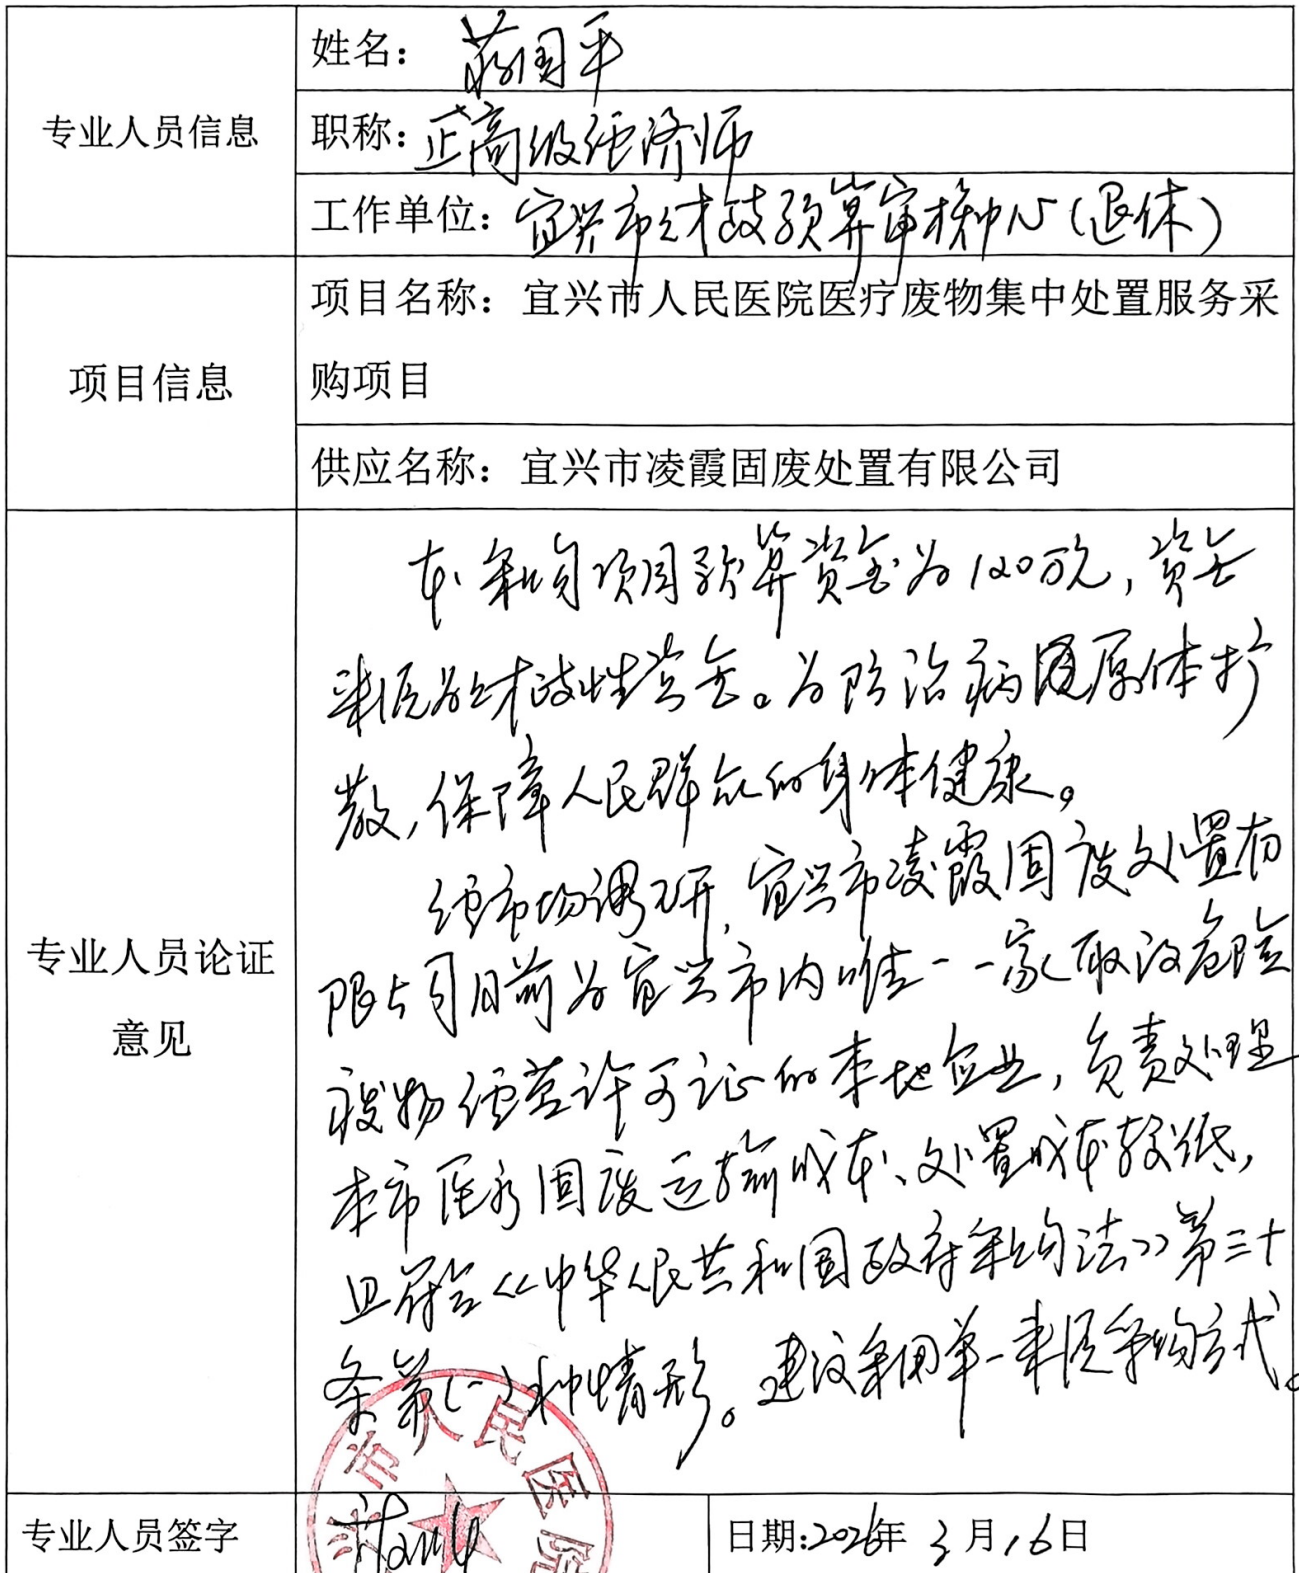 专业人员信息
姓名：蒋国平
职称：正高级经济师
工作单位：宜兴市财政预算审核中心（退休）
项目信息
项目名称：宜兴市人民医院医疗废物集中处置服务采
购项目
供应名称：宜兴市凌霞固废处置有限公司
专业人员论证
意见
本采购项目预算资金为120万元，资金
来源为财政性资金。为防治病原体扩
散，保障人民群众的身体健康。
经市场调研，宜兴市凌霞固废处置有
限公司目前为宜兴市内唯一一家取得危险
废物经营许可证的本地企业，负责处理
本市医疗固废运输成本、处置成本较低，
且符合《中华人民共和国政府采购法》第三十一
条第(一)种情形。建议采用单一来源采购方式。
专业人员签字
日期:2026年3月16日
兴市人民医院